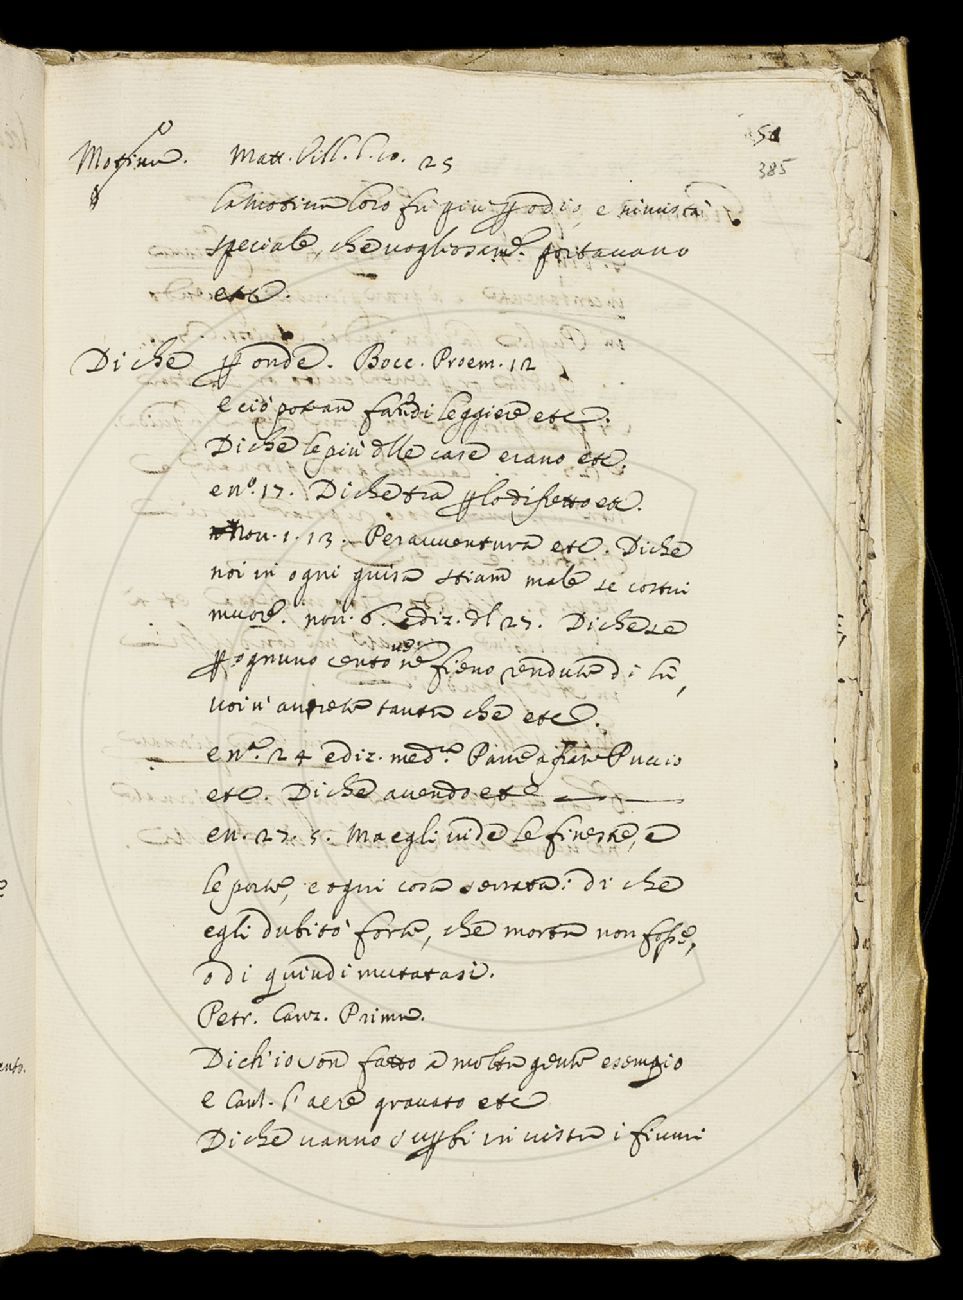 51
385
Motiva. Matt. Vill. l. 10. 25
la motiva loro fu più ꝑ odio, e nimistà
speciale, che vogliosamẽ. portavano
etc.
Di che ꝑ onde. Bocc. Proem. 12
e ciò potean far di leggiere etc.
Di che le più dlle case erano etc.
e nº. 17. Di che tra ꝑ lo difetto etc.
Nov. 1. 13. Peravventura etc. Di che
noi in ogni guisa stiam male se costui
muore. nov. 6. ediz. dl 27. Di che se
ꝑ ognuno cento ve ne fieno rendute di là,
voi n'avrete tanta che etc.
e nª. 24 ediz. medª. Pane a frate Puccio
etc. Di che avendo etc
e n. 27. 5. Ma egli vide le finestre, e
le porte, e ogni cosa serrata: di che
egli dubitò forte, che morta non fosse,
o di quindi mutatasi.
Petr. Canz. Prima.
Di ch'io son fatto a molta gente esempio
e Canz. l'aere gravato etc
Di che vanno suꝑbi in vista i fiumi